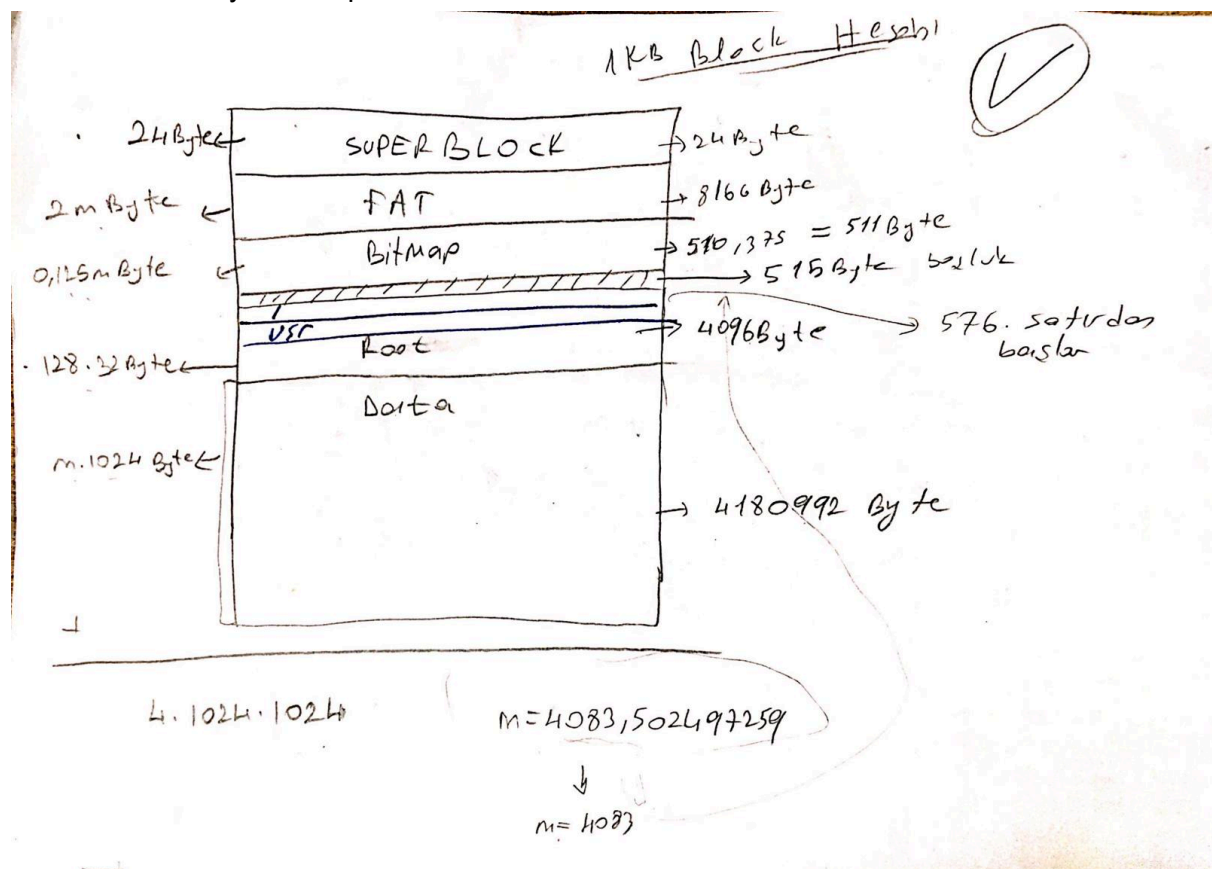 1KB Block Hesabı
24Byte
SUPER BLOCK
24Byte
2m Byte
FAT
8166 Byte
0,125m Byte
BitMap
510,375 = 511Byte
515Byte boşluk
/
usr
128.32 Byte
Root
4096Byte
576. satırdan
başlar
Data
m.1024 Byte
4180992 Byte
+
4.1024.1024
m=4083,502497259
m= 4083